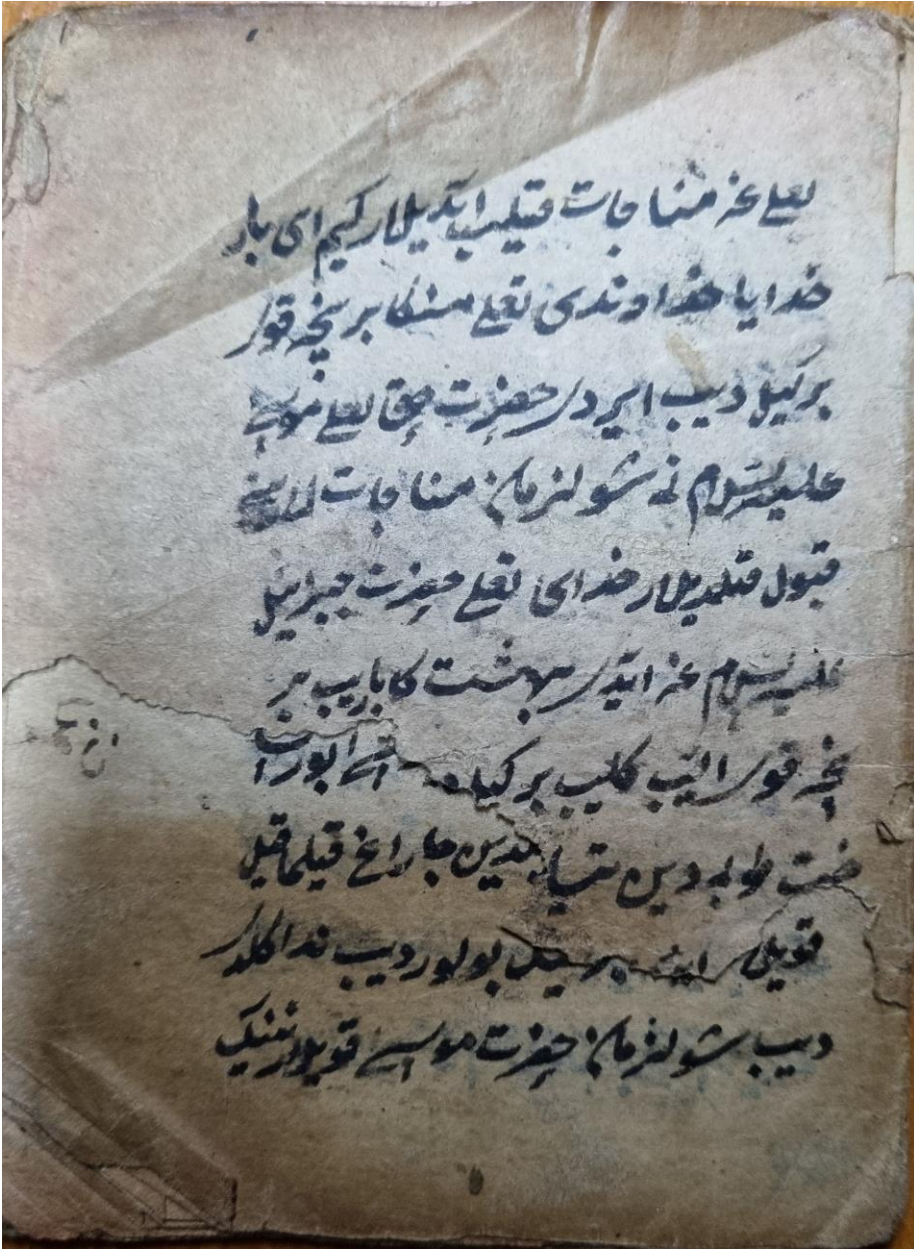 تعلی غه مناجات قیلیب ایدیلار کیم ای بار
خدایا خداوندی تعلی منکا بر نچه قوی
برکیل دیب ایردی حضرت حق تعلی موسی
علیه السلام نی شولزمان مناجات لارینی
قبول قیلدیلار خدای تعلی حضرت جبرائیل
علیه السلام غه ایدی بهشت کا باریب بر
نچه قوی الیب کلیب برکیل
خت طوبه دین جاراغ قیلماقیل
قویلار بولور دیب ندا کلدی
دیب شولزمان حضرت موسی قویلارنینک